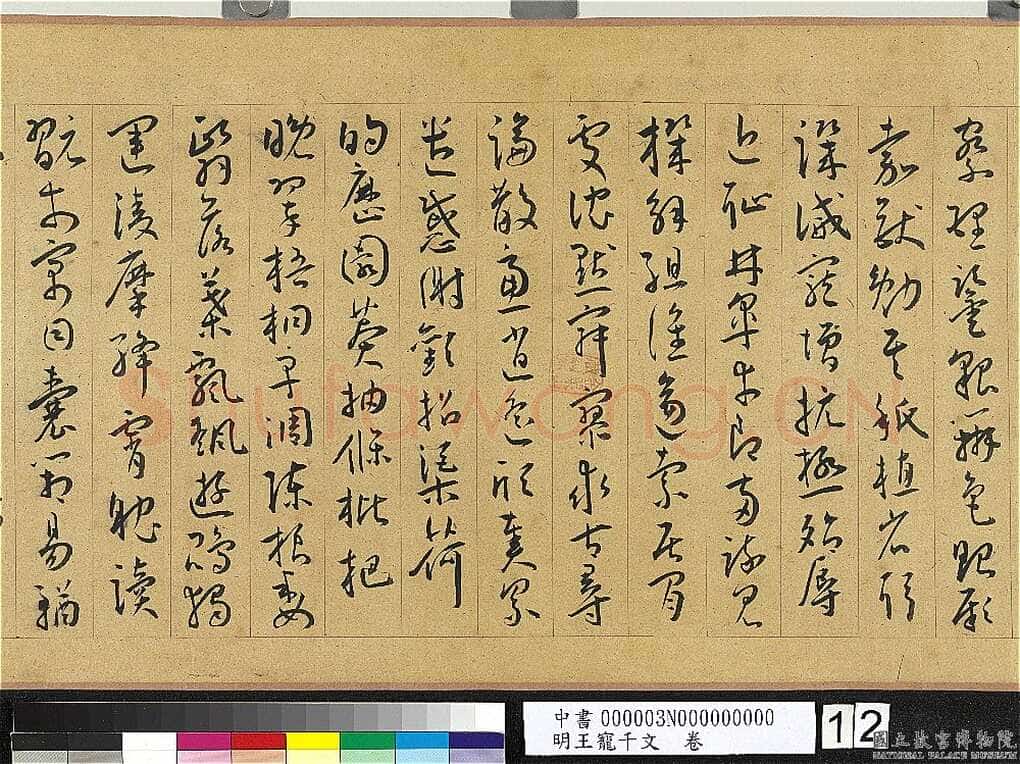 察理鑒貌辨色貽厥
嘉猷勉其祗植省躬
譏誡寵增抗極殆辱
近恥林皋幸即兩疏見
機解組誰逼索居閒
處沈默寂寥求古尋
論散慮逍遙欣奏累
遣慼謝歡招渠荷
的歷園莽抽條枇杷
晚翠梧桐早凋陳根委
翳落葉飄颻遊鵾獨
運凌摩絳霄耽讀
翫市寓目囊箱易輶
shufawang.cn
中書 000003N000000000
明王寵千文 卷
12
國立故宮博物院
NATIONAL PALACE MUSEUM